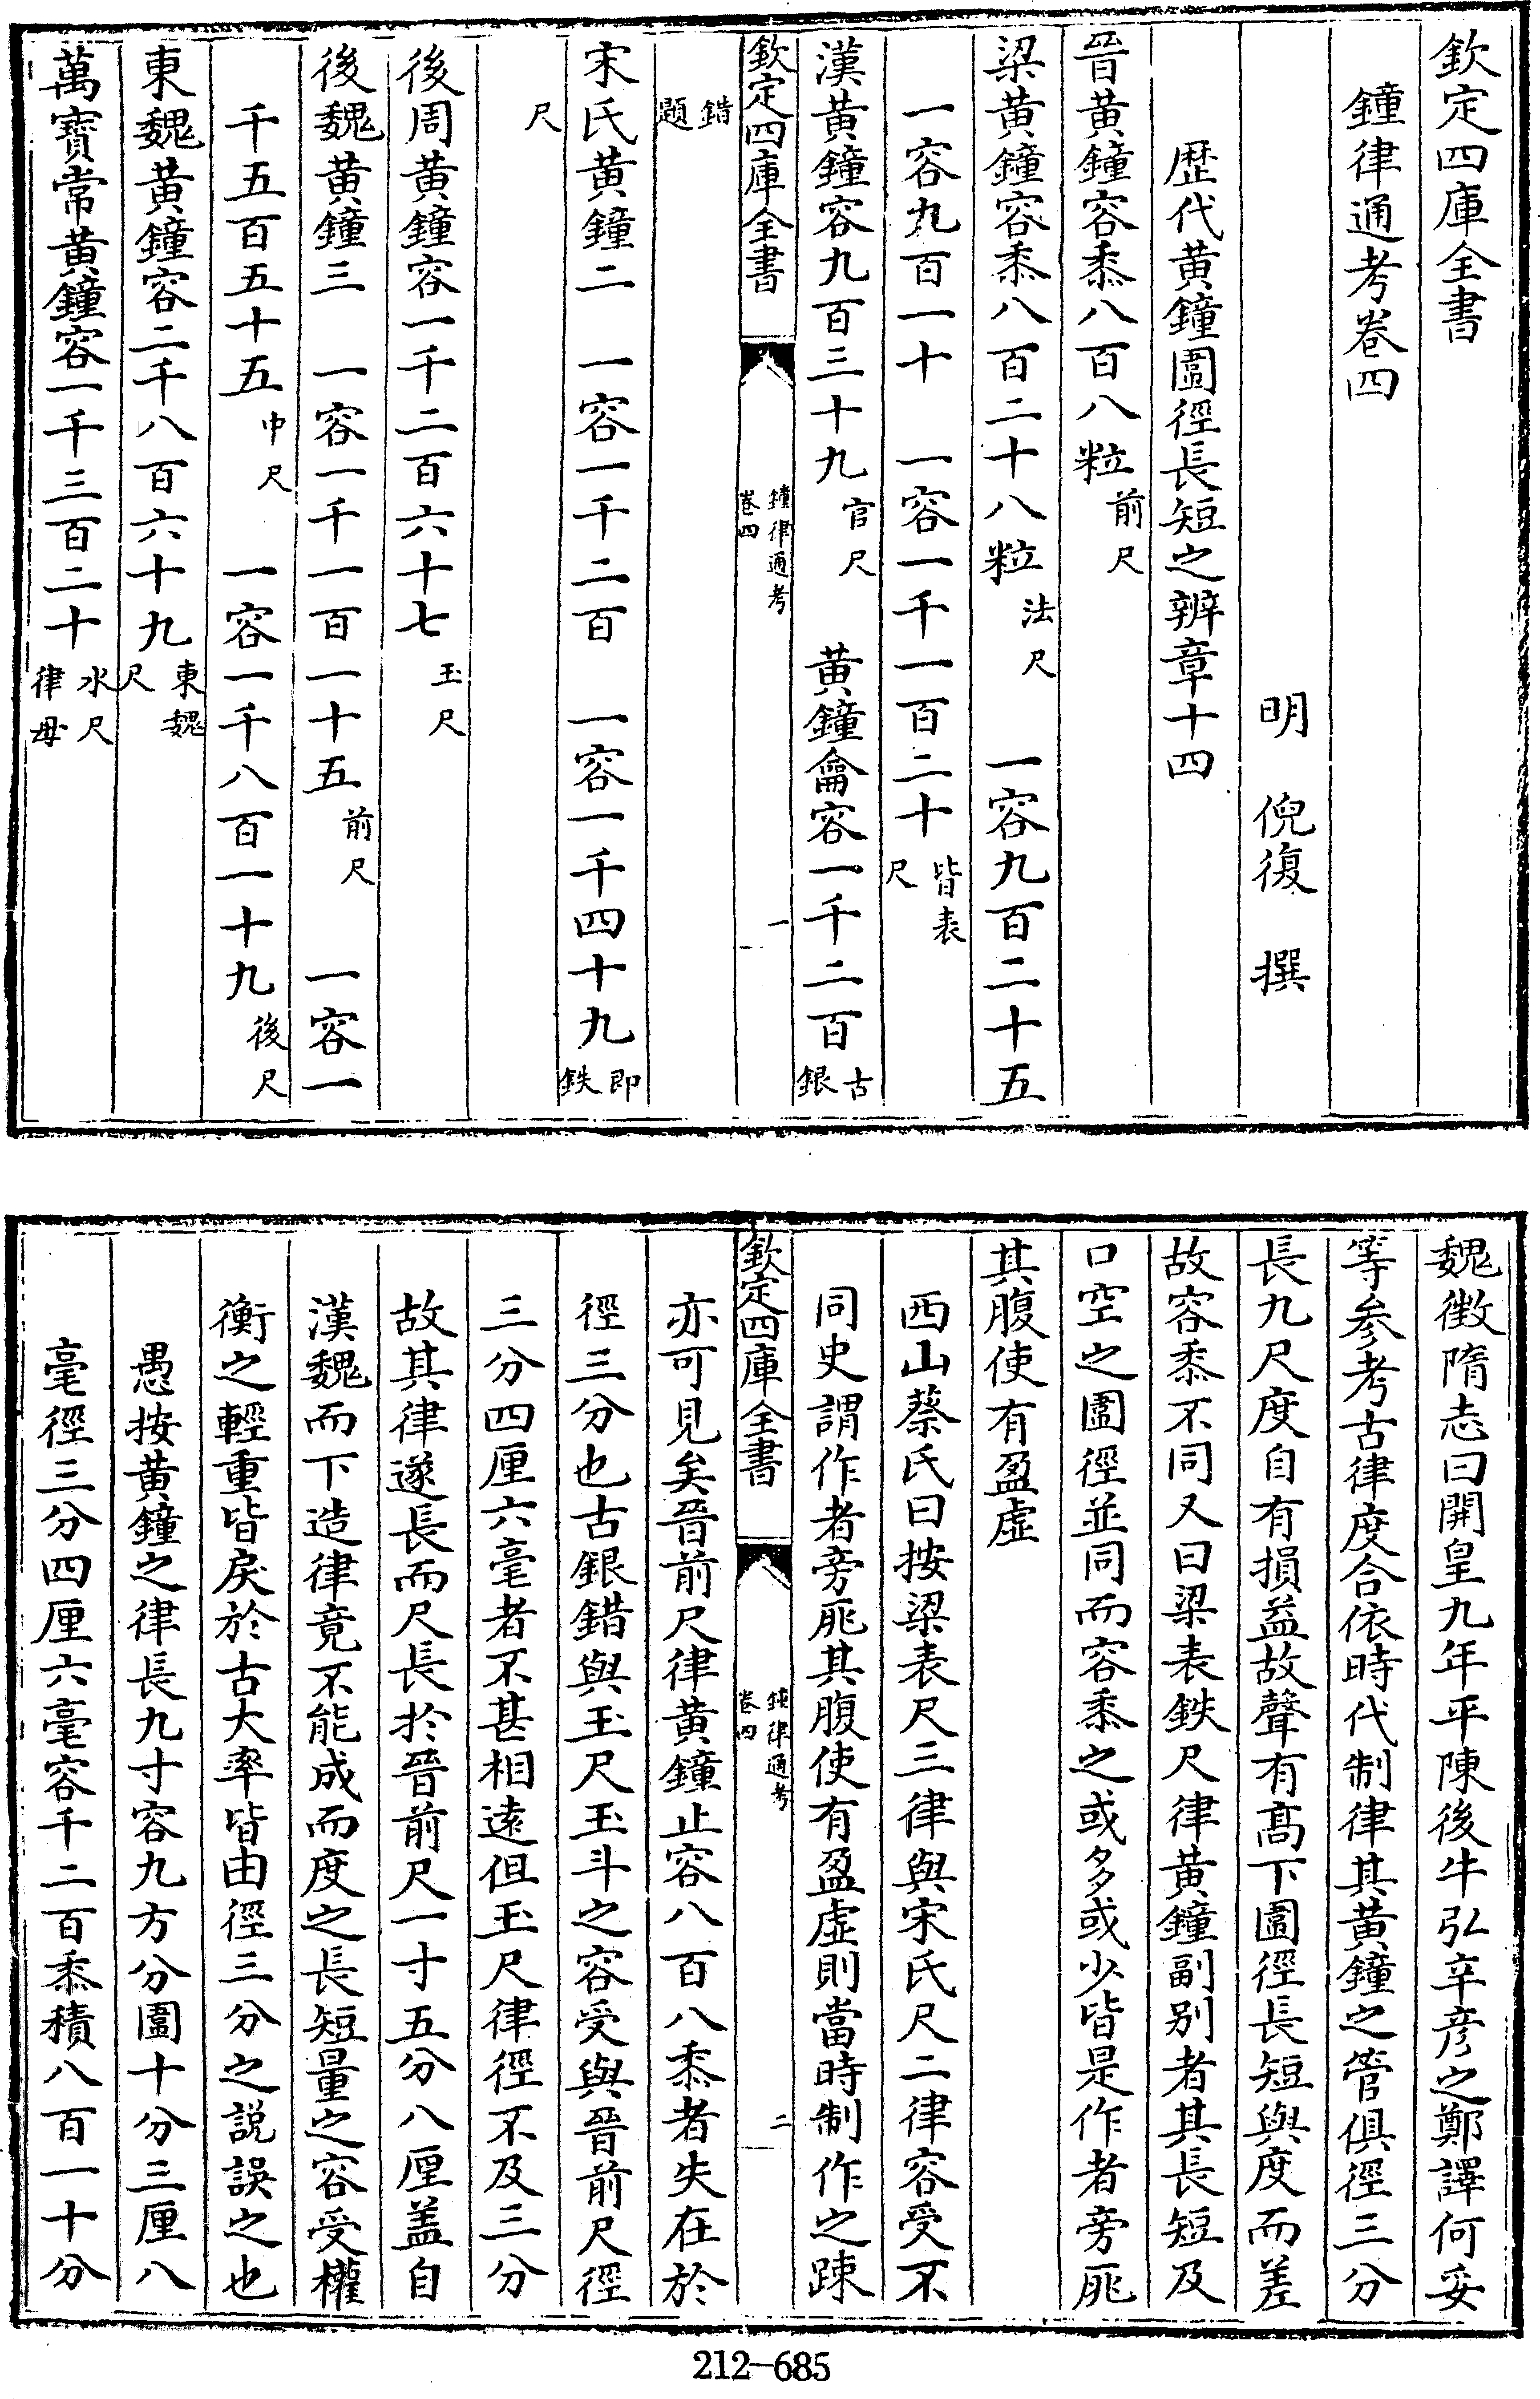 欽定四庫全書
鐘律通考卷四
明　倪復　撰
歴代黄鐘圍徑長短之辨章十四
晉黄鐘容黍八百八粒前尺
梁黄鐘容黍八百二十八粒法尺　一容九百二十五
一容九百一十　一容一千一百二十皆表尺
漢黄鐘容九百三十九官尺　黄鐘龠容一千二百古銀
錯題
宋氏黄鐘二　一容一千二百　一容一千四十九即鉄
尺
後周黄鐘容一千二百六十七玉尺
後魏黄鐘三　一容一千一百一十五前尺　一容一
千五百五十五中尺　一容一千八百一十九後尺
東魏黄鐘容二千八百六十九東魏尺
萬寳常黄鐘容一千三百二十水尺律母
欽定四庫全書
鐘律通考
卷四
一
魏徴隋志曰開皇九年平陳後牛弘辛彦之鄭譯何妥
等参考古律度合依時代制律其黄鐘之管俱徑三分
長九尺度自有損益故聲有高下圍徑長短與度而差
故容黍不同又曰梁表鉄尺律黄鐘副别者其長短及
口空之圍徑並同而容黍之或多或少皆是作者旁庣
其腹使有盈虚
西山蔡氏曰按梁表尺三律與宋氏尺二律容受不
同史謂作者旁庣其腹使有盈虚則當時制作之踈
亦可見矣晉前尺律黄鐘止容八百八黍者失在於
徑三分也古銀錯與玉尺玉斗之容受與晉前尺徑
三分四厘六毫者不甚相遠但玉尺律徑不及三分
故其律遂長而尺長於晉前尺一寸五分八厘盖自
漢魏而下造律竟不能成而度之長短量之容受權
衡之輕重皆戾於古大率皆由徑三分之説誤之也
愚按黄鐘之律長九寸容九方分圍十分三厘八
毫徑三分四厘六毫容千二百黍積八百一十分
欽定四庫全書
鐘律通考
卷四
二
212-685